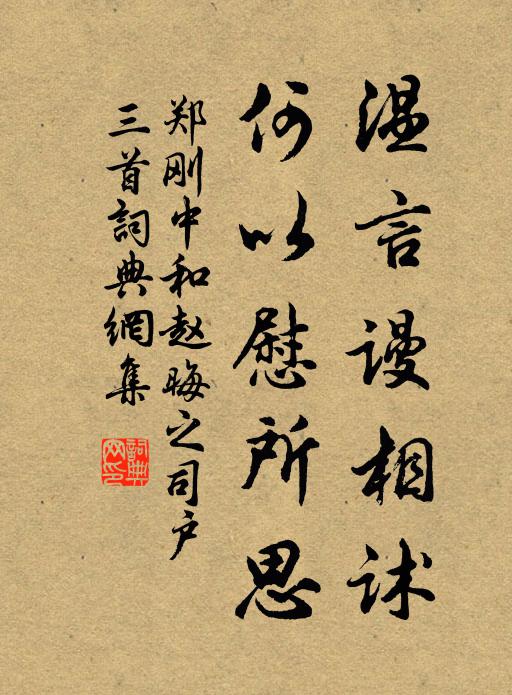 温言谩相訹
何以慰所思
郑刚中和赵晦之司户
三首詞典網集
詞典网印